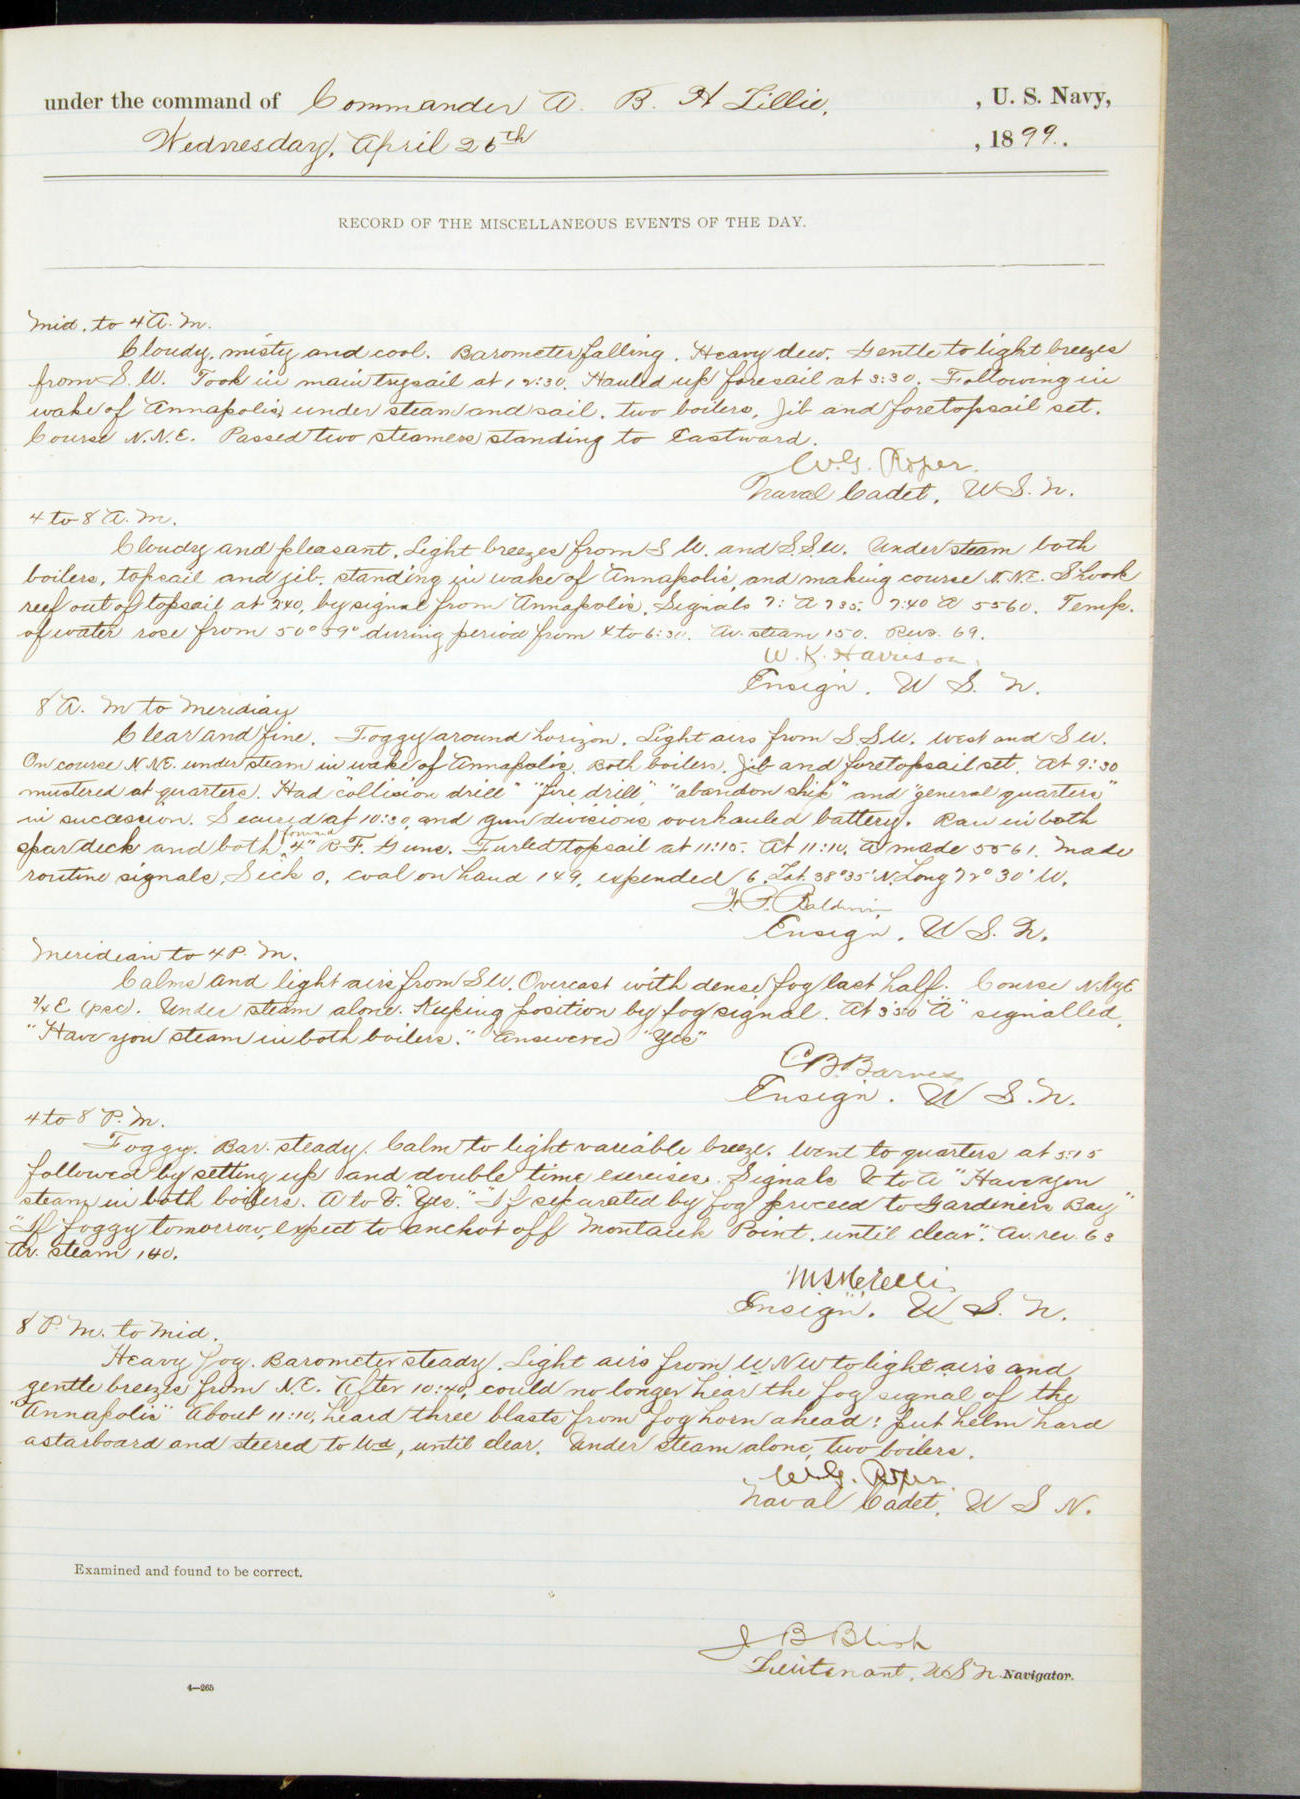 under the command of Commander A. B. H Lillie, , U. S. Navy,
Wednesday, April 26th , 1899.
RECORD OF THE MISCELLANEOUS EVENTS OF THE DAY.
Mid. to 4 A. M.
Cloudy, misty and cool. Barometer falling. Heavy dew. Gentle to light breezes
from S. W. Took in main trysail at 12:30. Hauled up foresail at 3:30. Following in
wake of Annapolis, under steam and sail, two boilers, jib and foretopsail set.
Course N.N.E. Passed two steamers standing to Eastward.
W.G. Roper.
Naval Cadet, U.S.N.
4 to 8 A. M.
Cloudy and pleasant. Light breezes from S W. and S.S.W. Under steam both
boilers, topsail and jib, standing in wake of Annapolis, and making course N.NE. Shook
reef out of topsail at 240, by signal from Annapolis. Signals 7: A 735. 7:40 A 5560. Temp.
of water rose from 50° 59° during period from 4 to 6:30. Av. steam 150. Revs. 69.
W. K. Harrison,
Ensign, U. S. N.
8 A. M to Meridian
Clear and fine. Foggy around horizon. Light airs from S.S.W. West and S W.
On course N NE. under steam in wake of Annapolis. Both boilers. Jib and foretopsail set. At 9:30
mustered at quarters. Had "collision drill" "fire drill", "abandon ship" and "general quarters"
in succession. Secured at 10:30, and gun divisions overhauled battery. Ran in both
spar deck and both forward 4" R.F. Guns. Furled topsail at 11:15. At 11:10, A made 5561. Made
routine signals. Sick 0, coal on hand 149, expended 6. Lat. 38°35' N. Long 72° 30' W.
F. P. Baldwin
Ensign, U. S. N.
Meridian to 4 P. M.
Calms and light airs from SW. Overcast with dense fog last half. Course N N by E
3/4 E (psc). Under steam alone. Keeping position by fog signal. At 3:50 "A" signalled,
"Have you steam in both boilers." Answered "Yes"
C.B. Barnes
Ensign. U. S. N.
4 to 8 P. M.
Foggy. Bar. steady. Calm to light variable breeze. Went to quarters at 5:15
followed by setting up and double time exercises. Signals V to A "Have you
steam in both boilers. A to V. "Yes." "If separated by fog proceed to Gardiners Bay"
"If foggy tomorrow, expect to anchor off Montauk Point, until clear". Av. rev. 63
Av. steam 140.
Ensign. U. S. N.
8 P. M. to Mid.
Heavy fog. Barometer steady. Light airs from W N W to light airs and
gentle breezes from N.E. After 10:40, could no longer hear the fog signal of the
"Annapolis" About 11:10, heard three blasts from fog horn ahead: put helm hard
astarboard and steered to Wd, until clear. Under steam alone, two boilers.
W.G. Roper
Naval Cadet, U S N.
Examined and found to be correct.
J B Blish
Lieutenant, U.S.N. Navigator.
4—265